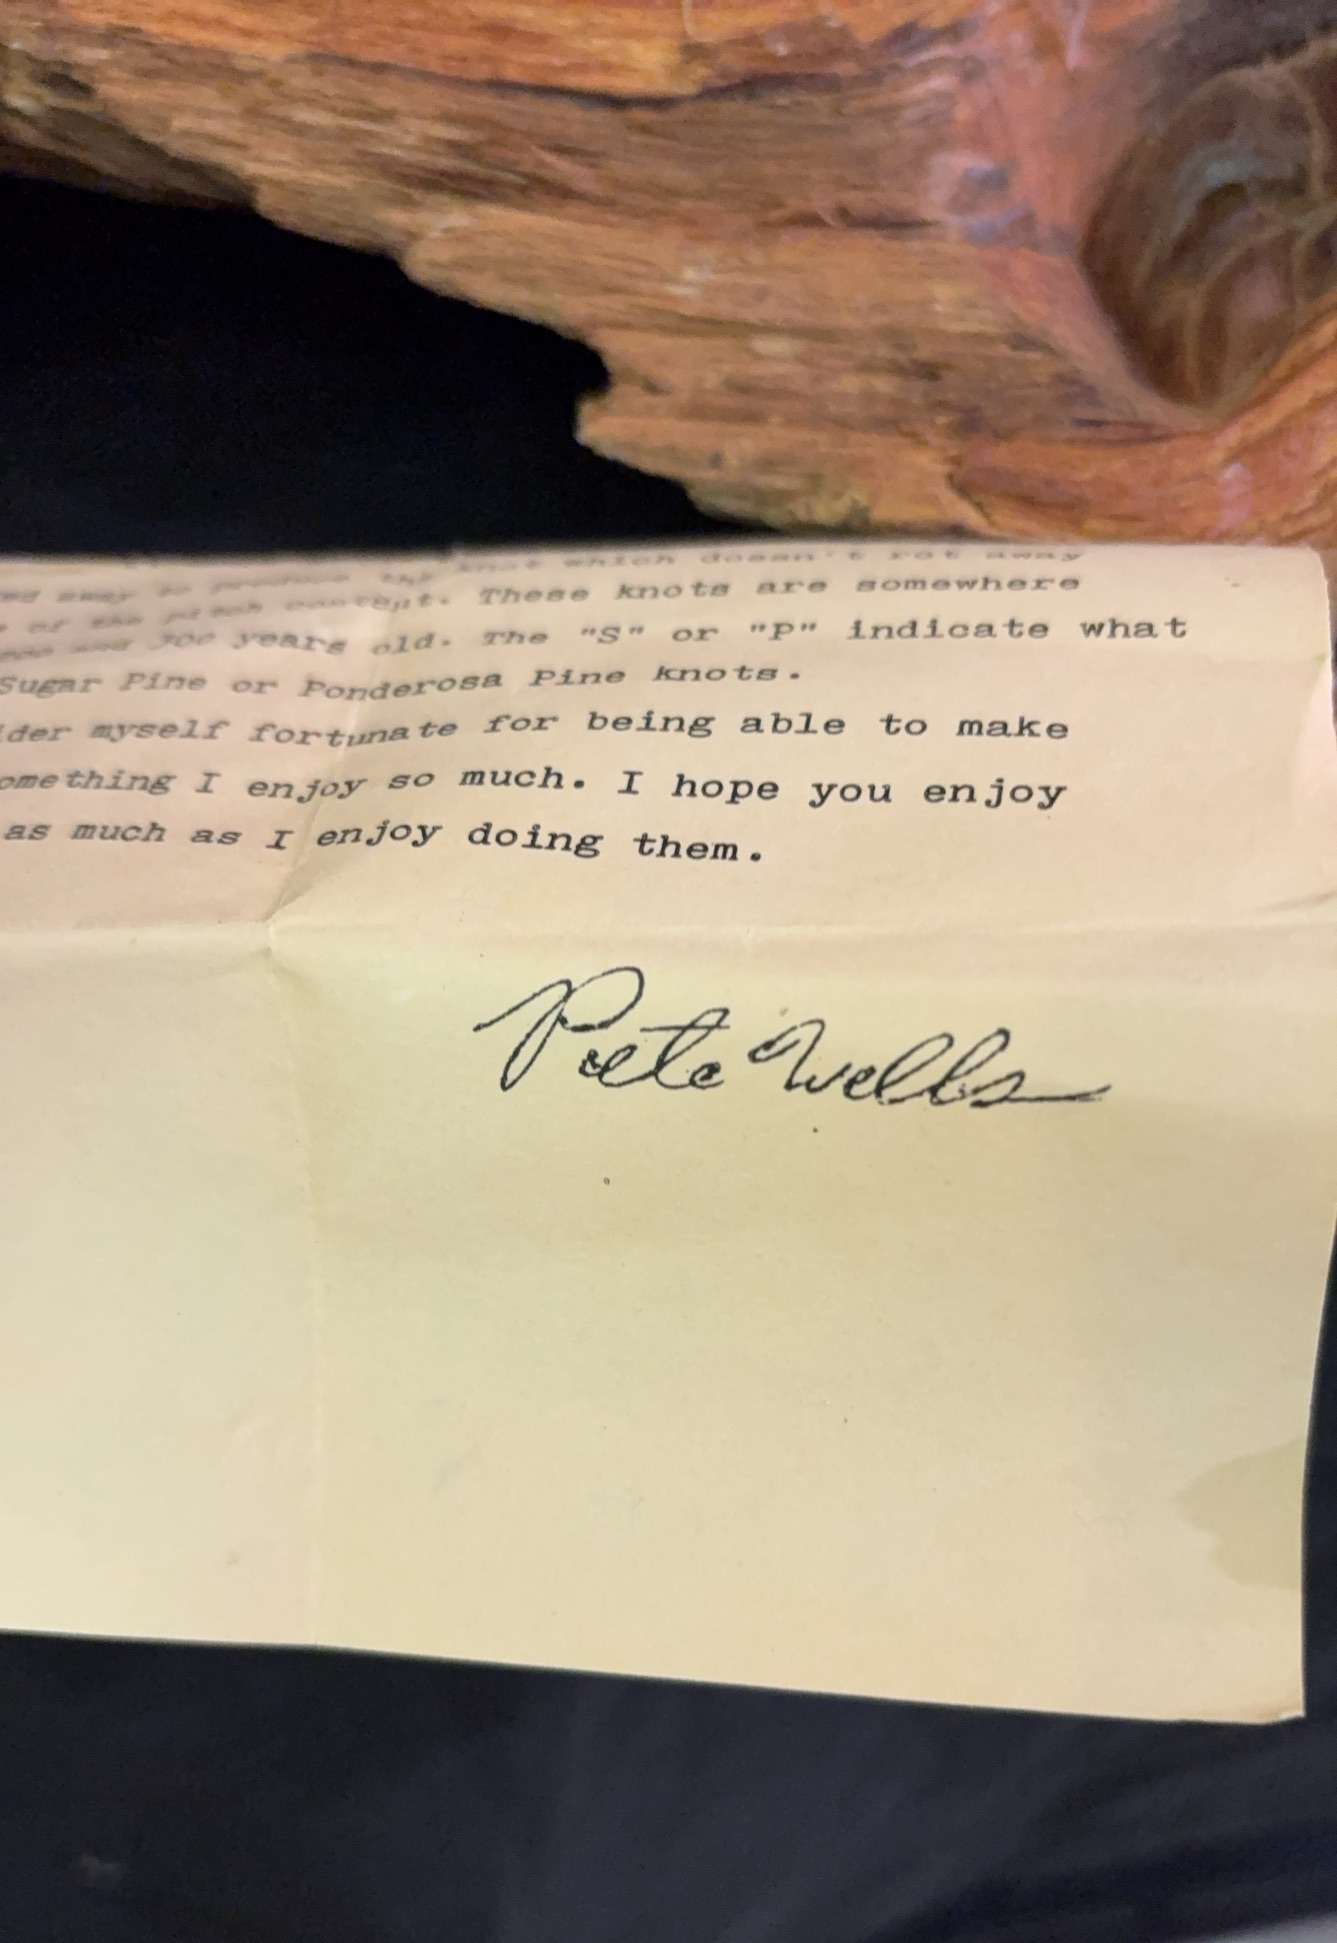 knot which doesn't rot away
of the pitch content. These knots are somewhere
and 300 years old. The "S" or "P" indicate what
Sugar Pine or Ponderosa Pine knots.
ider myself fortunate for being able to make
omething I enjoy so much. I hope you enjoy
as much as I enjoy doing them.
Pete Wells